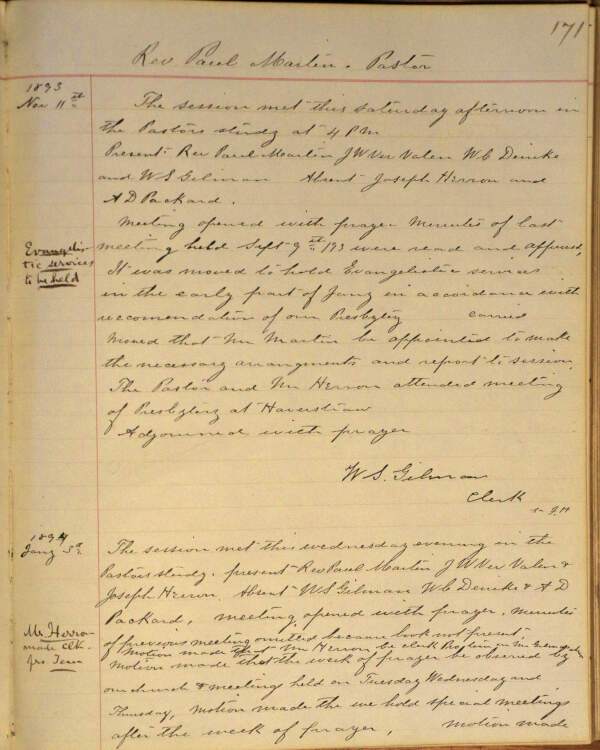 171
Rev Paul Martin. Pastor
1893
Nov 11th
The session met this saturday afternoon in
the Pastors study at 4 P M
Present: Rev Paul Martin J W Ver Valen W C Demke
and W S Gilman Absent Joseph Herron and
A D Packard.
Meeting opened with prayer Minutes of last
Evangelis-
tic services
to be held
meeting held Sept 9th 193 were read and approved,
It was moved to hold Evangelistic services
in the early part of Jany in accordance with
reccomendation of our Presbytery carried
Moved that Mr Martin be appointed to make
the necessary arrangments and report to session.
The Pastor and Mr Herron attended meeting
of Presbytery at Haverstraw
Adjourned with prayer
W. S. Gilman
Clerk
1894
Jany
The session met this wednesday evening in the
Pastors study. present Rev Paul Martin J W Ver Valen &
Joseph Herron, Absent W S Gilman W C Demke & A D
Packard, meeting opened with prayer, minutes
of previous meeting omitted because book not present,
Mr. Herron
made Clk-
pro Tem
Motion made that Mr Herron be clerk Protem in Mr
Motion made that the week of prayer be observed by
our church & meetings held on Tuesday Wednesday and
Thursday, Motion made the we hold special meetings
after the week of prayer, motion made